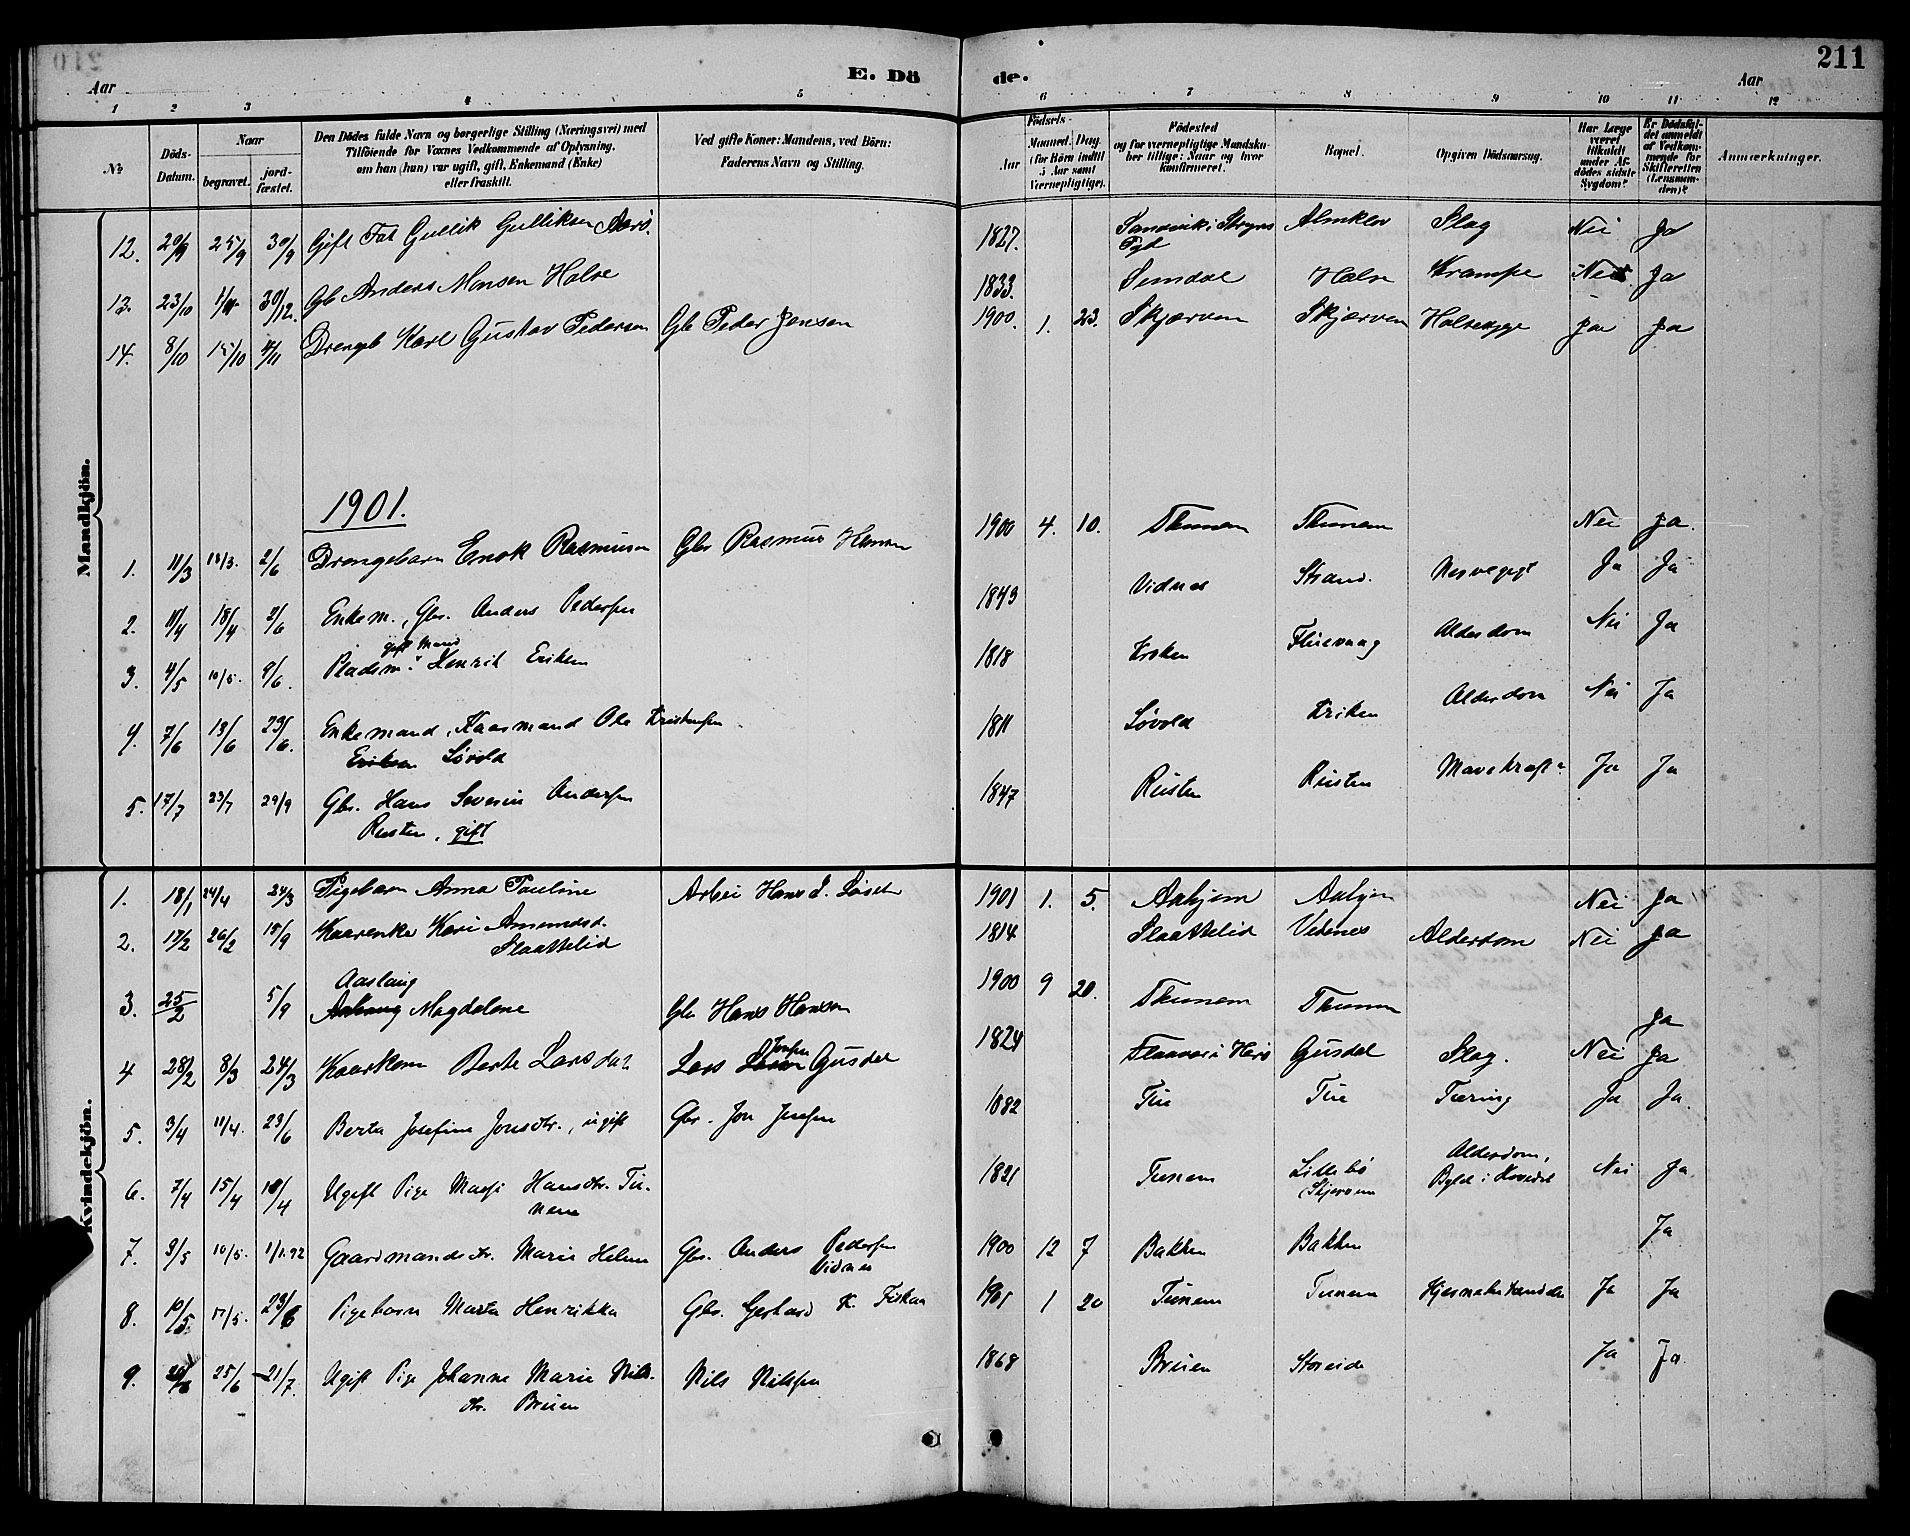 211
Aar
E. Dö
de.
Aar
1 2 3 4 5 6 7 8 9 10 11 12
No
Döds-Datum.
Naar
begravet.
jord-fæstet.
Den Dödes fulde Navn og borgerlige Stilling (Næringsvei) med
Tilföiende for Voxnes Vedkommende af Oplysning,
om han (hun) var ugift, gift, Enkemand (Enke)
eller fraskilt.
Ved gifte Koner: Mandens, ved Börn:
Faderens Navn og Stilling.
Födsels-
Aar
Maaned. Dag.
(for Börn indtil
5 Aar samt
Værnepligtige).
Födested
og for værnepligtige Mandska-
ber tillige: Naar og hvor
konfirmeret.
Bopæl.
Opgiven Dödsaarsag.
Har Læge
været
tilkaldt
under Af-
dödes sidste
Sygdom?
Er Dödsfal-
det anmeldt
af Vedkom-
mende for
Skifteretten
(Lensman-
den)?
Anmærkninger.
Mandkjön.
12. 20/9 25/9 30/9 Gift Fat Gullik Gulliksen Aars. 1827. Sandvik i Stryns Pgd Almklov Slag Nei Ja
13. 23/10 30/12. Gb Anders Monsen Halse 1833. Halse Krampe Nei Ja
14. 8/10 15/10 Drengeb Karl Gustav Pedersen Gb Peder Jensen 1900. 1. 23. Skjærven Skjærven Halsesyge Ja Ja
1901.
1. 11/3 18/3. 2/6 Drengebarn Enok Rasmusen Gbr Rasmus Hansen 1900 4. 10. Thunem Thunem Nei Ja.
2. 18/4 2/6 Enkem., Gbr. Anders Pedersen 1843 Vidnes Strand. Ja Ja
gift Mand
3. 4/5 10/5. 2/6. Pladsm. Henrik Eriksen 1818 Alderdom Nei Ja
4. 7/6 13/6 23/6. Enkemand, Kaarmand Ole Kristensen 1811 Løvold Alderdom Nei Ja
Eriksen Løvold
5. 17/7 23/7 29/9 Gbr. Hans Severin Andersen 1847 Rusten Rusten Mavekræft Ja Ja
Rusten, gift
Kvindekjön.
1. 18/1 24/4 24/3 Pigebarn Anna Pauline Arbei Hans 1901 1. 5. Aahjem Aahjem Nei Ja
2. 17/2 26/2 15/9 Kaarenke Kari Amundsd. 1814 Slaattelid Vedenes Alderdom Nei Ja
Slaattelid
Aaslaug
3. 25/2 5/9 Magdalene Gb Hans Hansen 1900 9 20. Thunem Thunem Ja
4 28/2 8/3 24/3 Kaarkone Berte Larsdat Lars Gusdal 1824 Gusdal Slag. Nei Ja
5. 3/4 11/4. 23/6 Berta Josefine Jonsdtr., ugift Gbr. Jon Josefsen 1882 Tue Tue Tæring Ja Ja.
6. 7/4 15/4 Ugift Pige Hansdtr. Tu- 1821 Tunem Lillebö Alderdom, Nei Ja
nem Skjerven
7. 3/5 10/5. Gaardmandsdtr. Marie Helene Gbr. Anders Pedersen 1900 12 7 Bakken Bakken Ja
Vidnes
8. 10/5 17/5. 23/6 Pigebarn Marta Henrikka Gbr. Gerhard K. 1901 1 20 Tunem Tunem Ja Ja
9. 25/6 21/7. Ugift Pige Johanne Marie Nils- Nils Nilssen 1868 Bruen Storeide Ja Ja.
dtr. Bruen